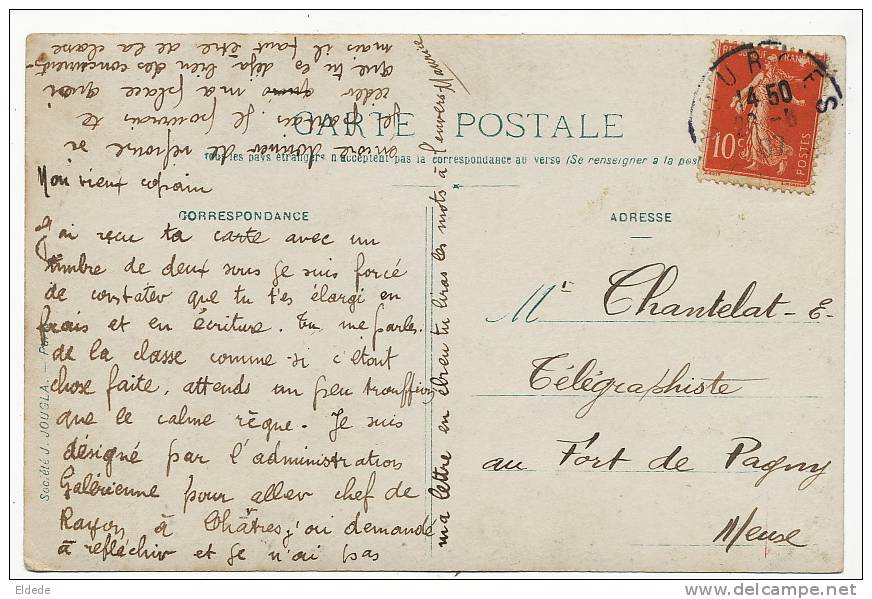 CARTE POSTALE
Tous les pays étrangers n'acceptent pas la correspondance au verso (Se renseigner a la poste)
CORRESPONDANCE
Mon vieux copain
J'ai reçu ta carte avec un
timbre de deux sous je suis forcé
de constater que tu t'es élargi en
frais et en écriture. Tu me parles
de la classe comme si c'étout
chose faite, attends un peu trouffion
que le calme règne. Je suis
désigné par l'administration
Galérienne pour aller chef de
Rayon à Châtres j'ai demandé
à refléchir et je n'ai pas
encore donner de réponse si
je partais je pourrais te
ceder ma place quoi
que tu es déjà bien des
mais il faut être de la classe
ma lettre en ébreu tu liras les mots à l'envers Maurice
ADRESSE
Mr Chantelat - E -
Télégraphiste
au Fort de Pagny
Meuse
Société J. JOUGLA. —
14 50
10c
POSTES
Eldede
www.delcampe.net